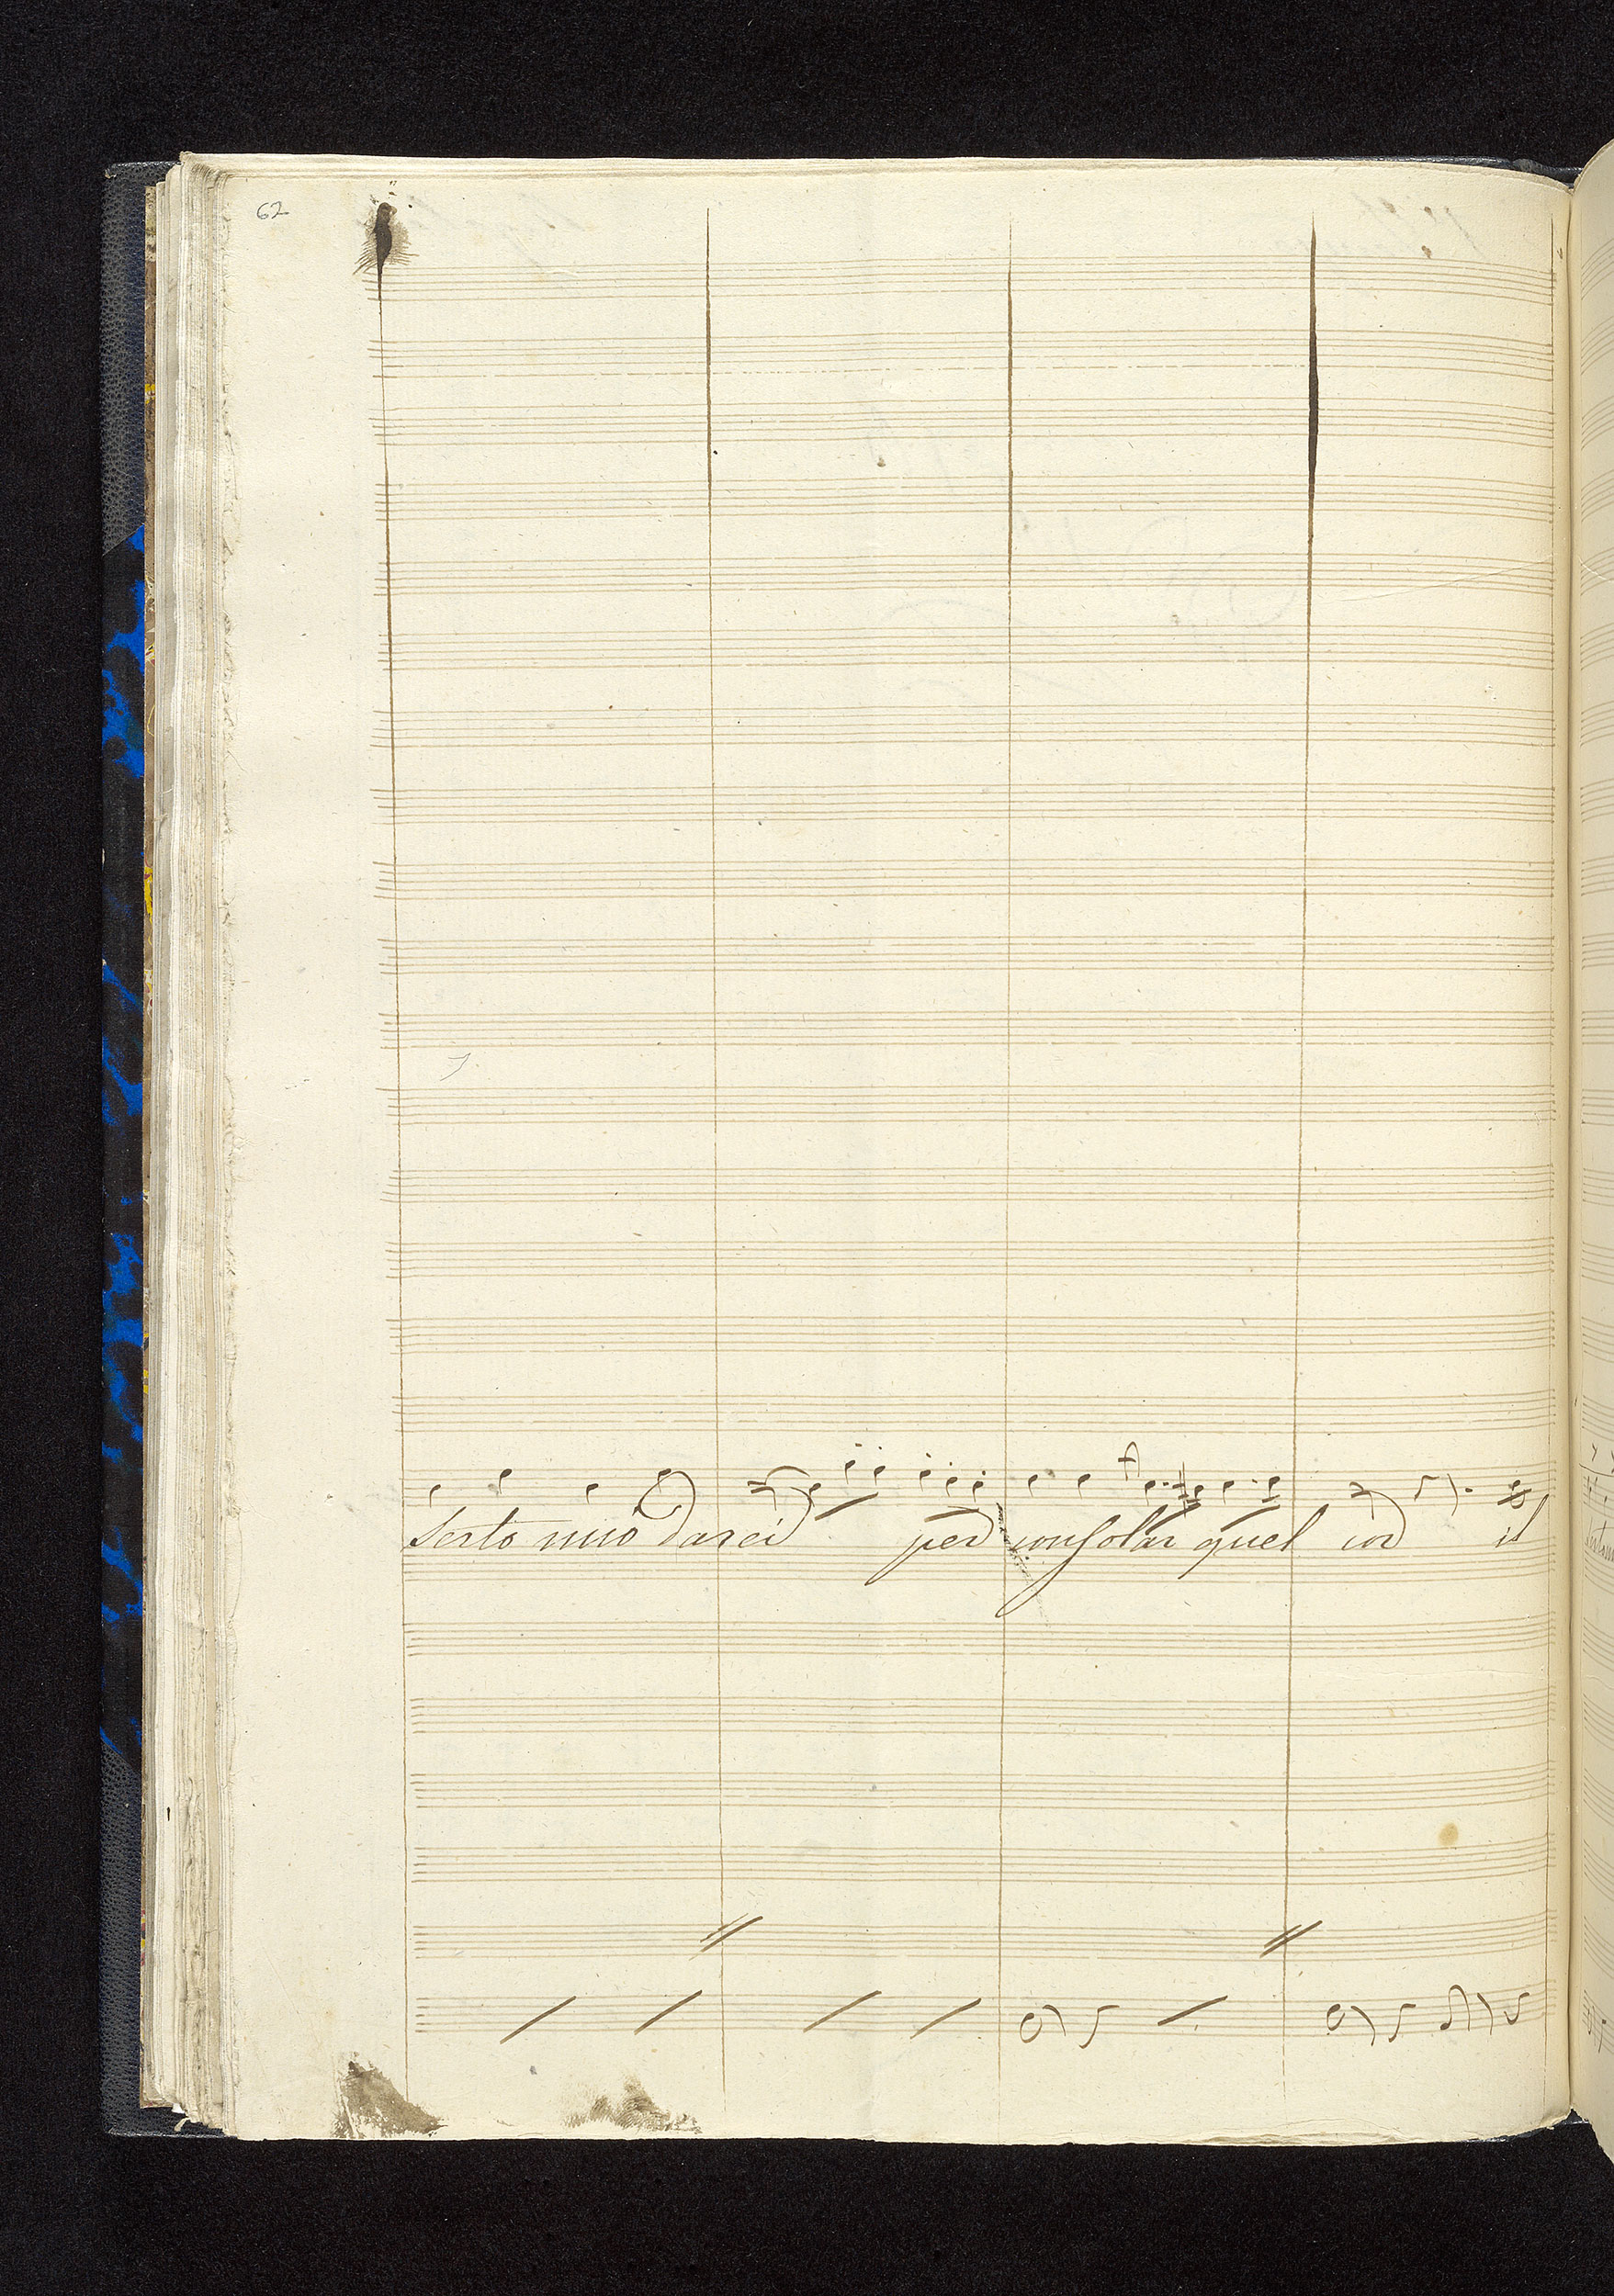 62
serto mio darei per consolar quel cor il